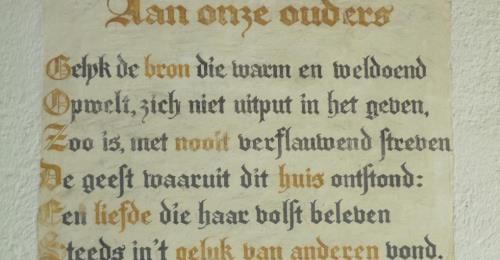 Aan onze ouders
Gelyk de bron die warm en weldoend
Opwelt, zich niet uitput in het geven,
Zoo is, met nooit verflauwend streven
De geest waaruit dit huis ontstond:
Een liefde die haar volst beleven
Steeds in't geluk van anderen vond.